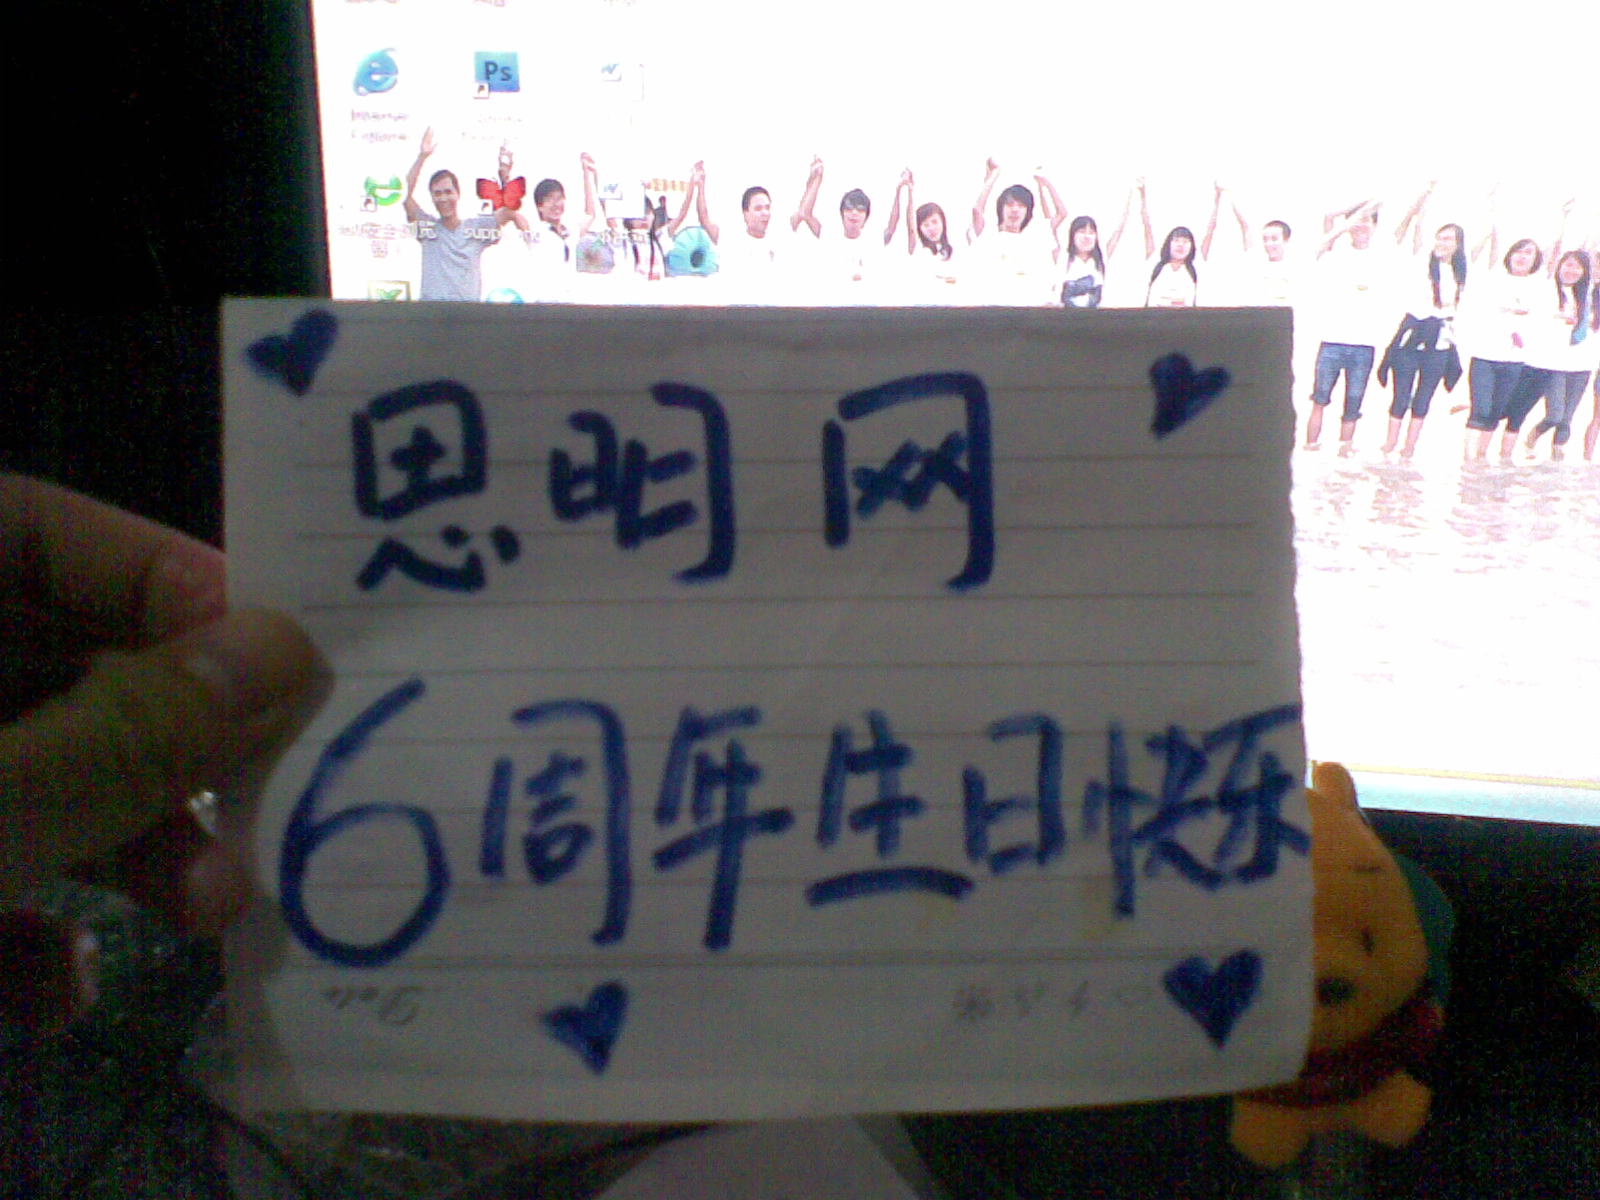 Ps
恩明网
6周年生日快乐